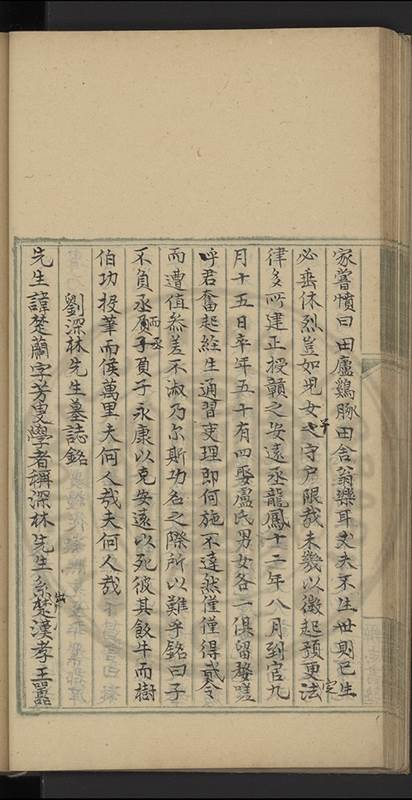 家嘗憤曰田廬鷄豚田舍翁樂耳丈夫不生世則已生
必垂休烈豈如兒女子守户限哉未幾以徵起預更法定
律多所建正授贛之安遠丞龍鳳十二年八月到官九
月十五日卒年五十有四娶盧氏男女各一俱留婺嗟
呼君奮起經生通習吏理即何施不達然僅僅得貳令
而遭值叅差不淑乃尔斯功名之際所以難乎銘曰子
不負丞而丞負子永康以克安遠以死彼其飯牛而樹
伯功投筆而侯萬里夫何人哉夫何人哉
劉深林先生墓誌銘
先生諱楚蘭字芳叟學者稱深林先生系出楚漢孝王囂